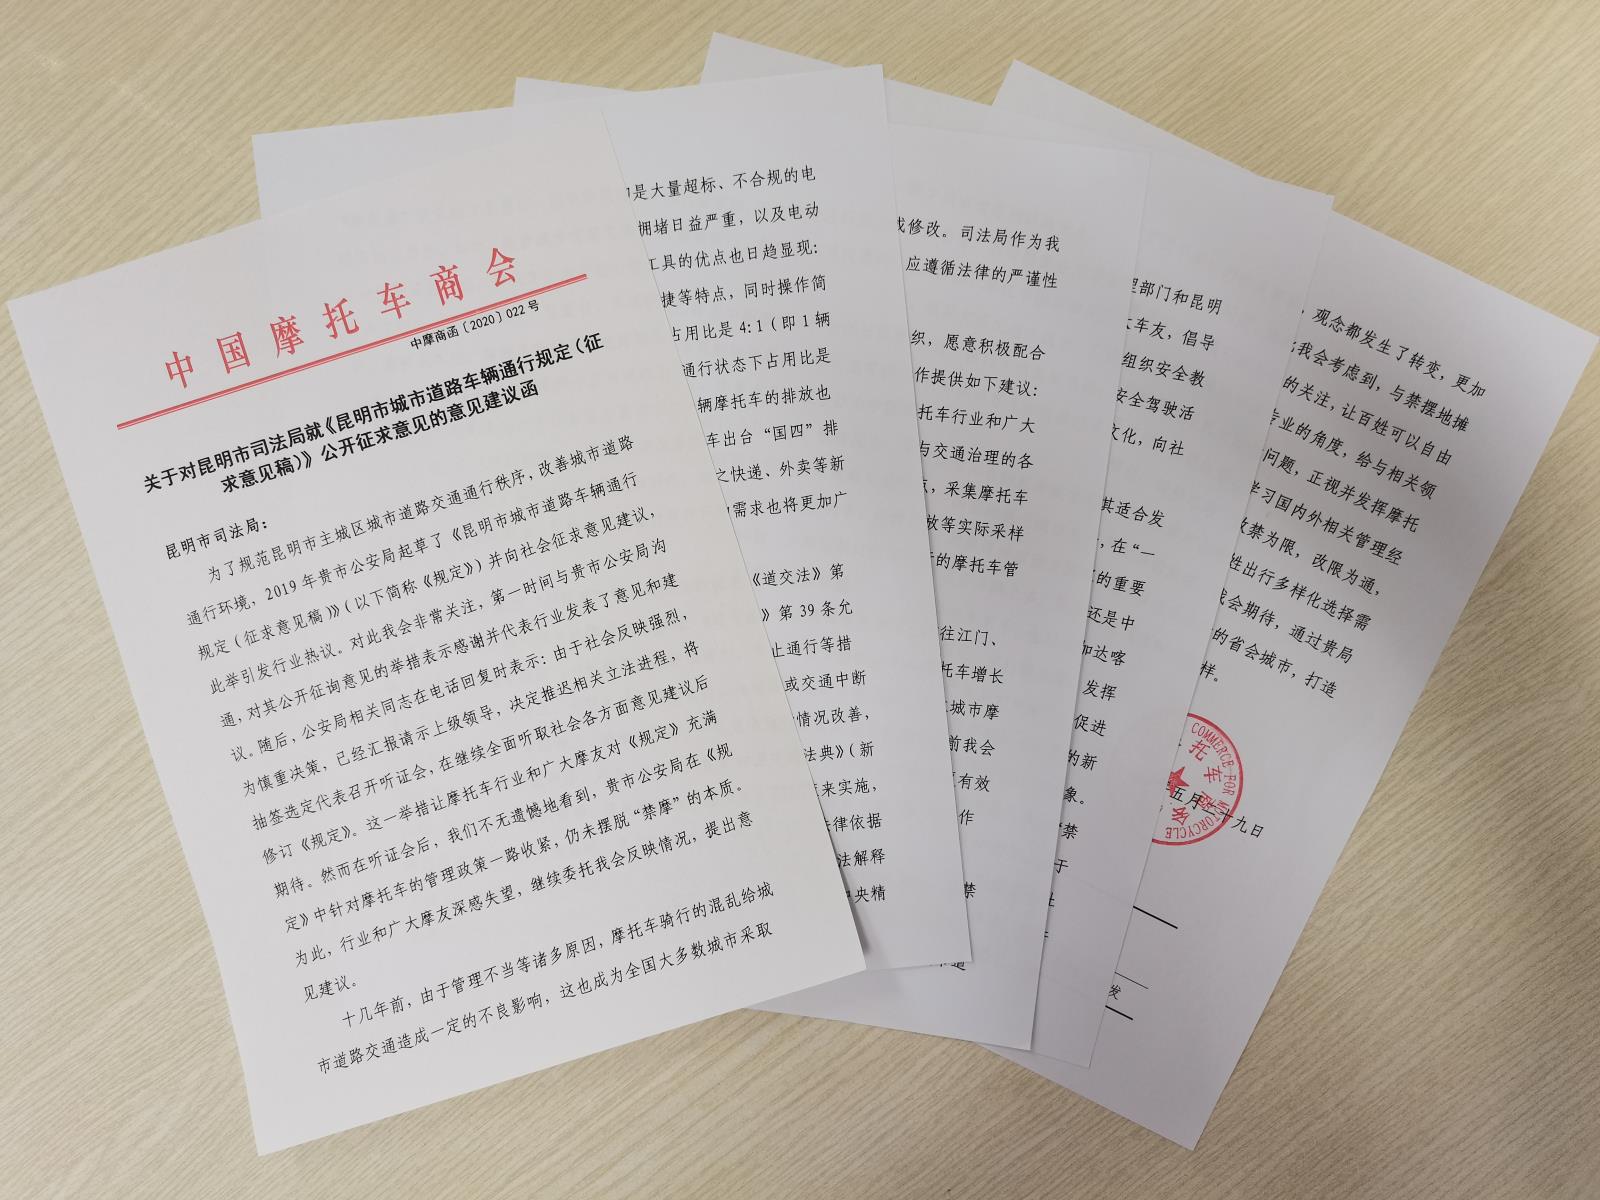 中国摩托车商会
中摩商函〔2020〕022号
关于对昆明市司法局就《昆明市城市道路车辆通行规定（征
求意见稿）》公开征求意见的意见建议函
昆明市司法局：
为了规范昆明市主城区城市道路交通通行秩序，改善城市道路
通行环境，2019年贵市公安局起草了《昆明市城市道路车辆通行
规定（征求意见稿）》（以下简称《规定》）并向社会征求意见建议，
此举引发行业热议。对此我会非常关注，第一时间与贵市公安局沟
通，对其公开征询意见的举措表示感谢并代表行业发表了意见和建
议。随后，公安局相关同志在电话回复时表示：由于社会反映强烈，
为慎重决策，已经汇报请示上级领导，决定推迟相关立法进程，将
抽签选定代表召开听证会，在继续全面听取社会各方面意见建议后
修订《规定》。这一举措让摩托车行业和广大摩友对《规定》充满
期待。然而在听证会后，我们不无遗憾地看到，贵市公安局在《规
定》中针对摩托车的管理政策一路收紧，仍未摆脱“禁摩”的本质。
为此，行业和广大摩友深感失望，继续委托我会反映情况，提出意
见建议。
十几年前，由于管理不当等诸多原因，摩托车骑行的混乱给城
市道路交通造成一定的不良影响，这也成为全国大多数城市采取
是大量超标、不合规的电
拥堵日益严重，以及电动
工具的优点也日趋显现：
捷等特点，同时操作简
占用比是4:1（即1辆
通行状态下占用比是
辆摩托车的排放也
车出台“国四”排
之快递、外卖等新
需求也将更加广
《道交法》第
》第39条允
止通行等措
或交通中断
情况改善，
法典》（新
来实施，
律依据
法解释
中央精
修改。司法局作为我
应遵循法律的严谨性
织，愿意积极配合
作提供如下建议：
托车行业和广大
与交通治理的各
，采集摩托车
放等实际采样
的摩托车管
往江门、
托车增长
城市摩
前我会
有效
作
禁
理部门和昆明
车友，倡导
组织安全教
安全驾驶活
文化，向社
其适合发
，在“一
的重要
还是中
加达喀
发挥
促进
的新
象。
禁
于
，观念都发生了转变，更加
我会考虑到，与禁摆地摊
的关注，让百姓可以自由
专业的角度，给与相关领
问题，正视并发挥摩托
学习国内外相关管理经
改禁为限，改限为通，
姓出行多样化选择需
我会期待，通过贵局
的省会城市，打造
样。
COMMERCE FOR MOTORCYCLE
托车商会
五月二十九日
发